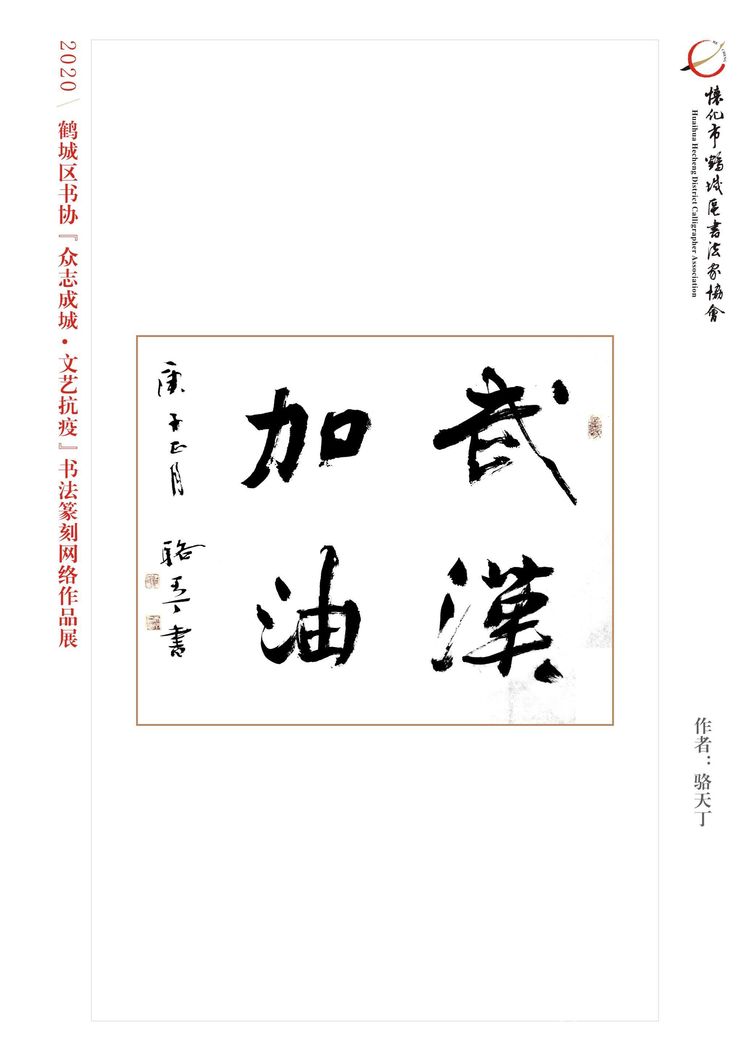 2020
鹤城区书协『众志成城·文艺抗疫』书法篆刻网络作品展
懷化市鶴城區書法家協會
Huaihua Hecheng District Calligrapher Association
武漢
加油
庚子正月
駱天丁書
作者：骆天丁